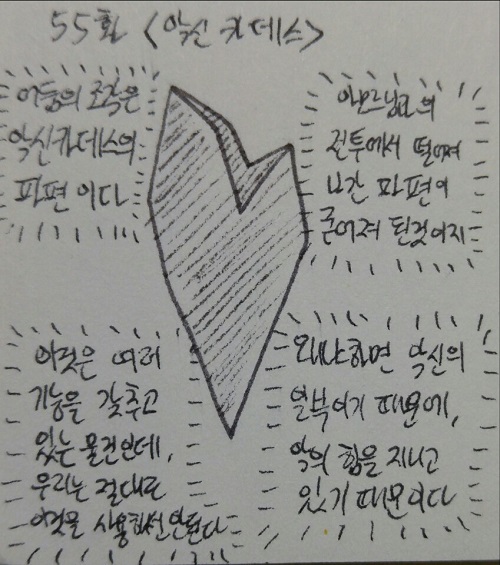 55화 <악신 카데스>
어둠의 조각은
악신카데스의
파편이다
전투에서 떨어져
나간 파편이
굳어져 된것이지
이것은 여러
기능을 갖추고
있는 물건인데,
우리는 절대로
이것을 사용해선 안된다
왜냐하면 악신의
일부이기 때문에,
악의 힘을 지니고
있기 때문이다